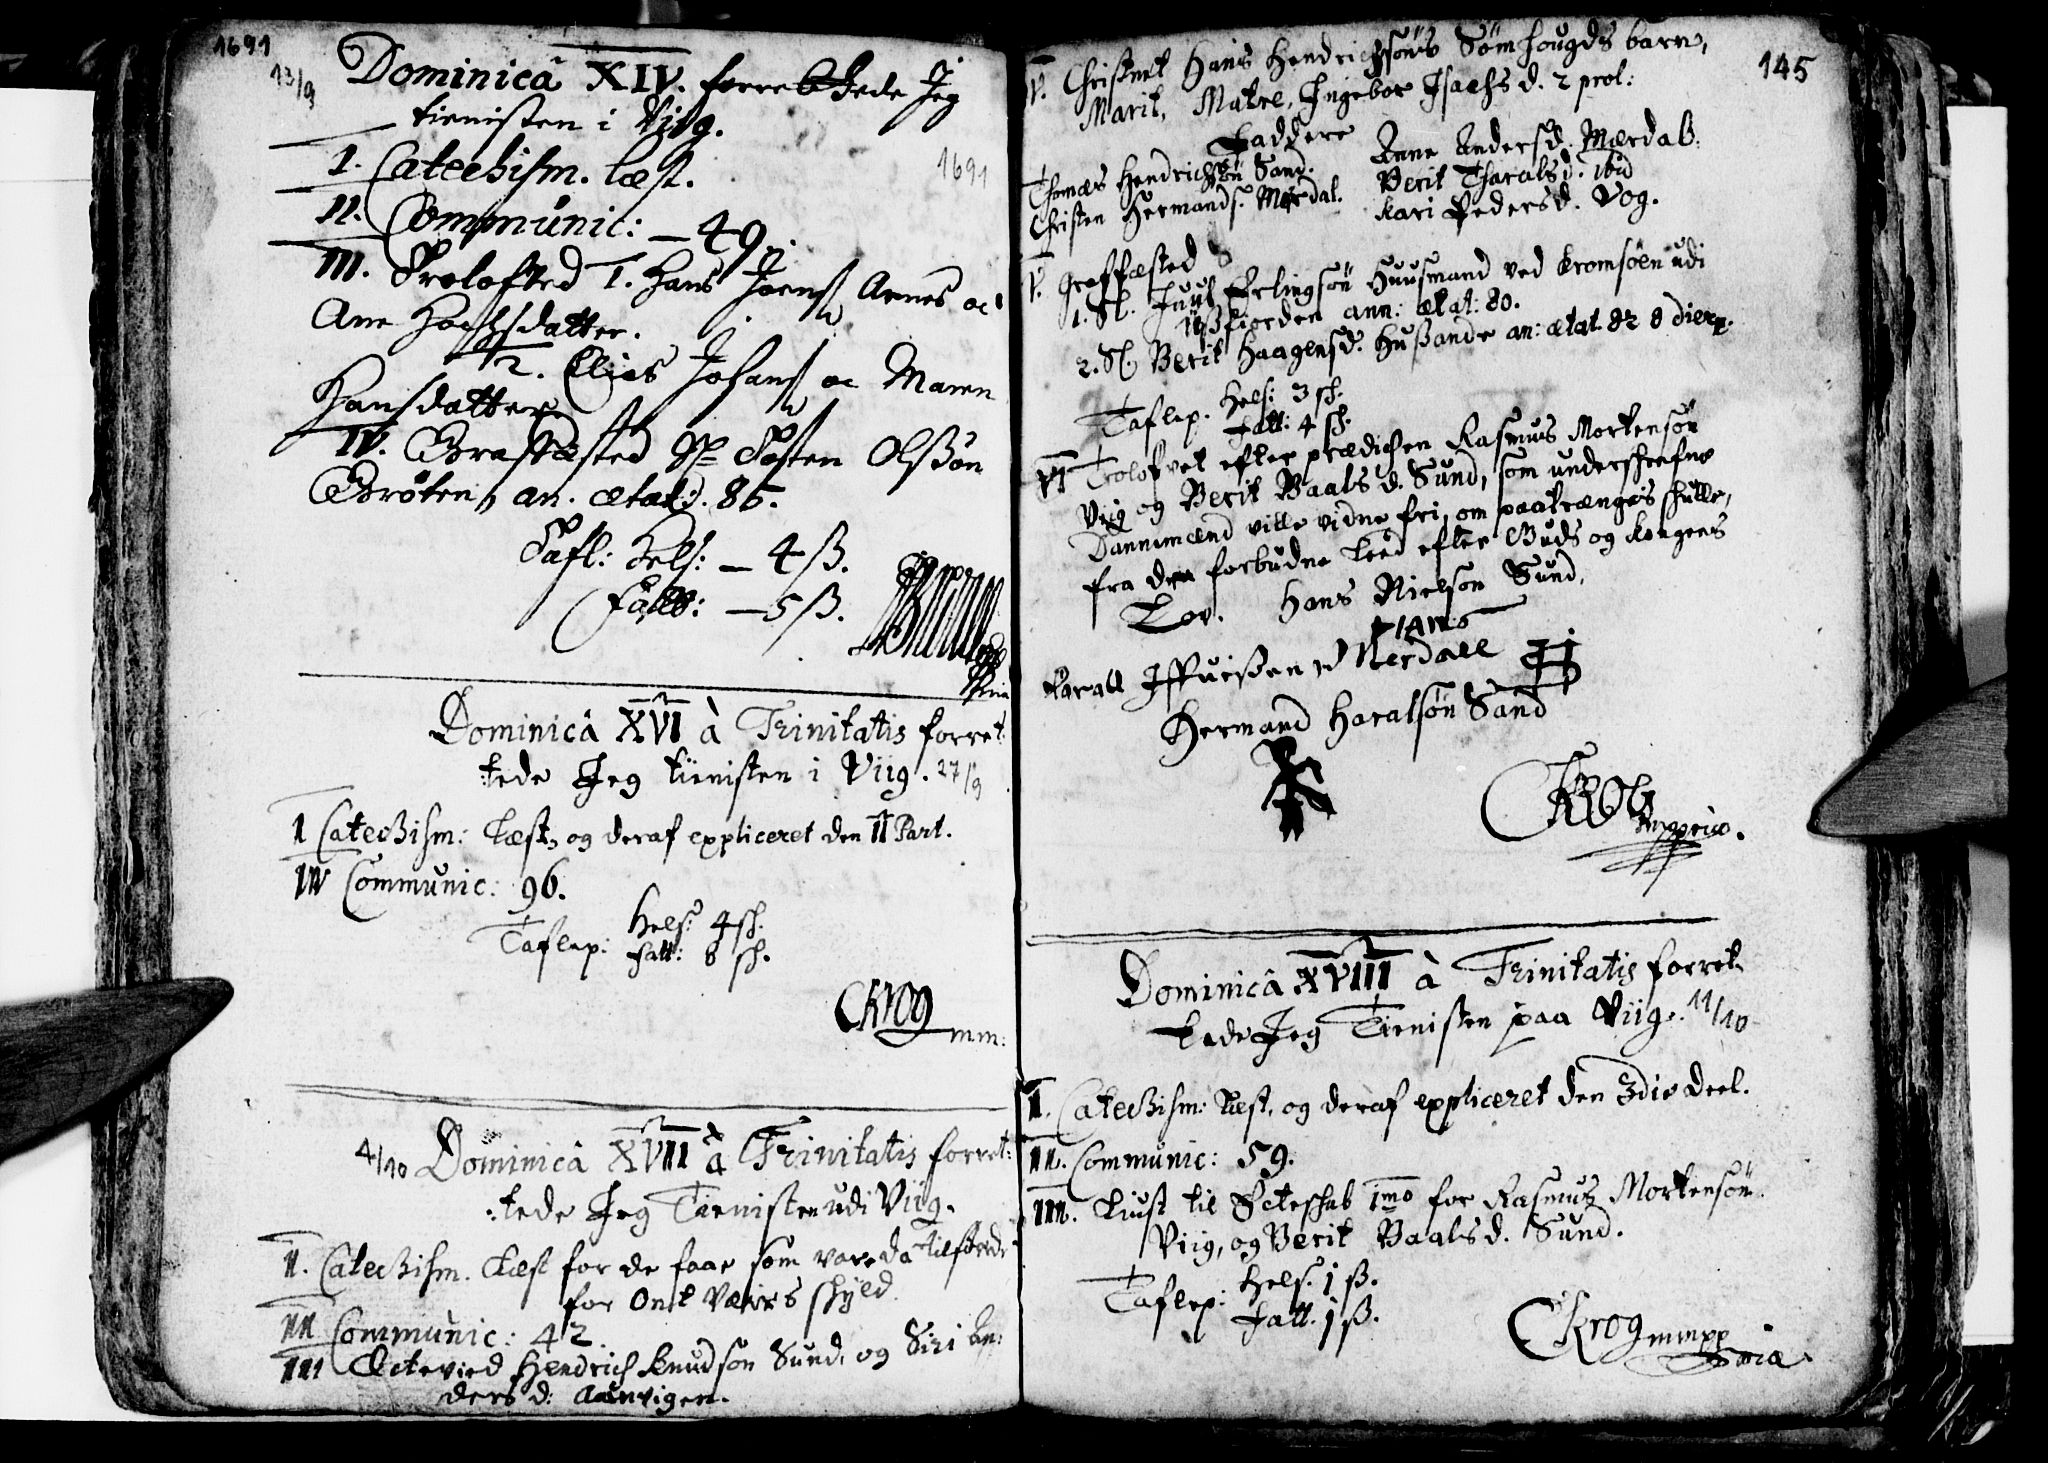 1691
13/9
Dominicâ XIV. forrettede Jeg
tienisten i Viig.
1691
I. Catechism. læst.
II. Communic: – 49.
III. Trolofted 1. Hans Joens Arnes oc
Ane Hachsdatter.
2. Elias Johans oc Maren
Hansdatter
IV. Grafæsted Sl Tosten Olsøn
Brøten, an. ætat: 85.
Tafl: Hels: – 4 ß.
Fatt: – 5 ß.
Dominicâ XVI à Trinitatis forret-
tede Jeg tienisten i Viig. 27/9
I Catechism: Læst, og deraf expliceret den II Part.
II Communic: 96.
Taflep: Hels: 4 sh.
Fatt: 8 sh.
CKrog
mm:
4/10 Dominicâ XVII à Trinitatis forret:
:tede Jeg Tienisten udi Viig.
I. Catechism. Læst for de faae som vare da tilstede
for Ont Værrs skyld.
II Communic: 42.
III Ectevied Hendrich Knudsøn Sund, og Siri An:
ders d: Aanvigen.
145
IV. Christnet Hans Hendrichsøns Sømhougds barn,
Marit, Matre, Ingebor Isachs d. 2 prol:
Faddere
Thomas Hendrichsøn Sand.
Christen Hermands. Mærdal.
Anne Anders d. Mærdal.
Berit Tharals d. ibid
Kari Peders d. Vog.
V. Graffæsted
1. Sl. Juul Erlingsøn Huusmand ved Kromsøen udi
Ißfiorden ann: ætat: 80.
2. Sl. Berit Haagens d. Hußande an: ætat. 82 8 dier.
Taflep. Hels: 3 sh.
Fatt: 4 sh.
VI Trolofvet efter prædichen Rasmus Mortensøn
Viig og Berit Baals d. Sund, som underskrefne
Dannemænd ville vidne fri, om paatrænges skulle,
fra den forbudne Leed efter Guds og Kongens
Lov. Hans Nielson Sund.
Haralsøn Sand
Hermand
CKrog
mpprio.
Dominicâ XVIII à Trinitatis forret-
tede Jeg Tienisten paa Viig. 11/10
I. Catechism: Læst, og deraf expliceret den 3die Deel.
II. Communic: 59.
III. Liust til Ecteskab 1mo for Rasmus Mortensøn
Viig, og Berit Baals d. Sund.
Taflep: Hels: 1 ß.
Fatt. 1 ß.
CKrog mmpp